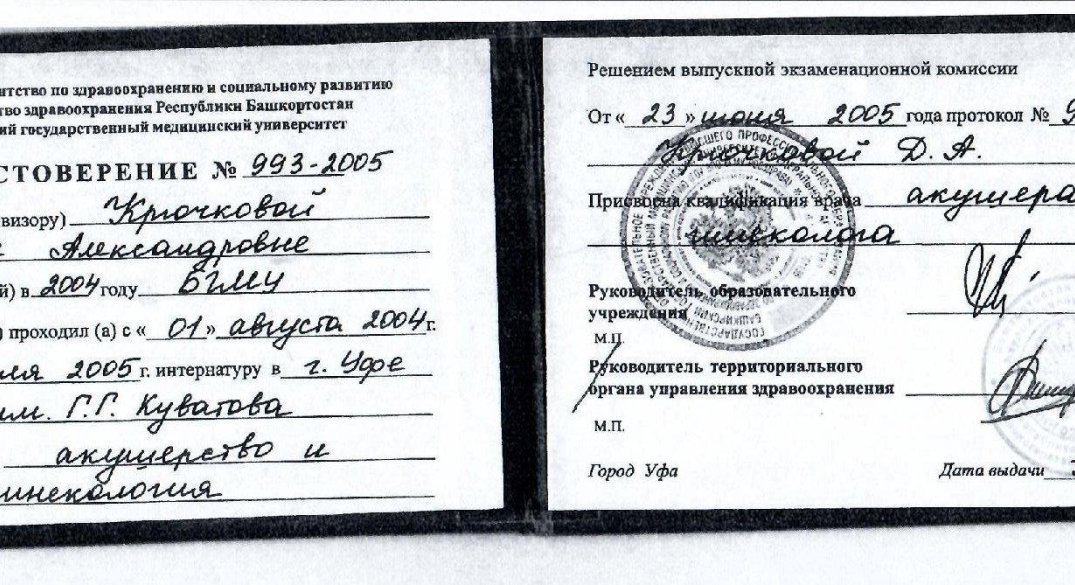 нтство по здравоохранению и социальному развитию
тво здравоохранения Республики Башкортостан
ий государственный медицинский университет
СТОВЕРЕНИЕ № 993-2005
визору) Крючковой
Александровне
й) в 2004 году БГМУ
) проходил (а) с « 01 » августа 2004 г.
ля 2005 г. интернатуру в г. Уфе
им. Г.Г. Куватова
акушерство и
инекология
Решением выпускной экзаменационной комиссии
От « 23 » июня 2005 года протокол № 9
Крючковой Д. А.
Присвоена квалификация врача акушера
гинеколога
Руководитель образовательного
учреждения
М.П.
Руководитель территориального
органа управления здравоохранения
М.П.
Город Уфа
Дата выдачи